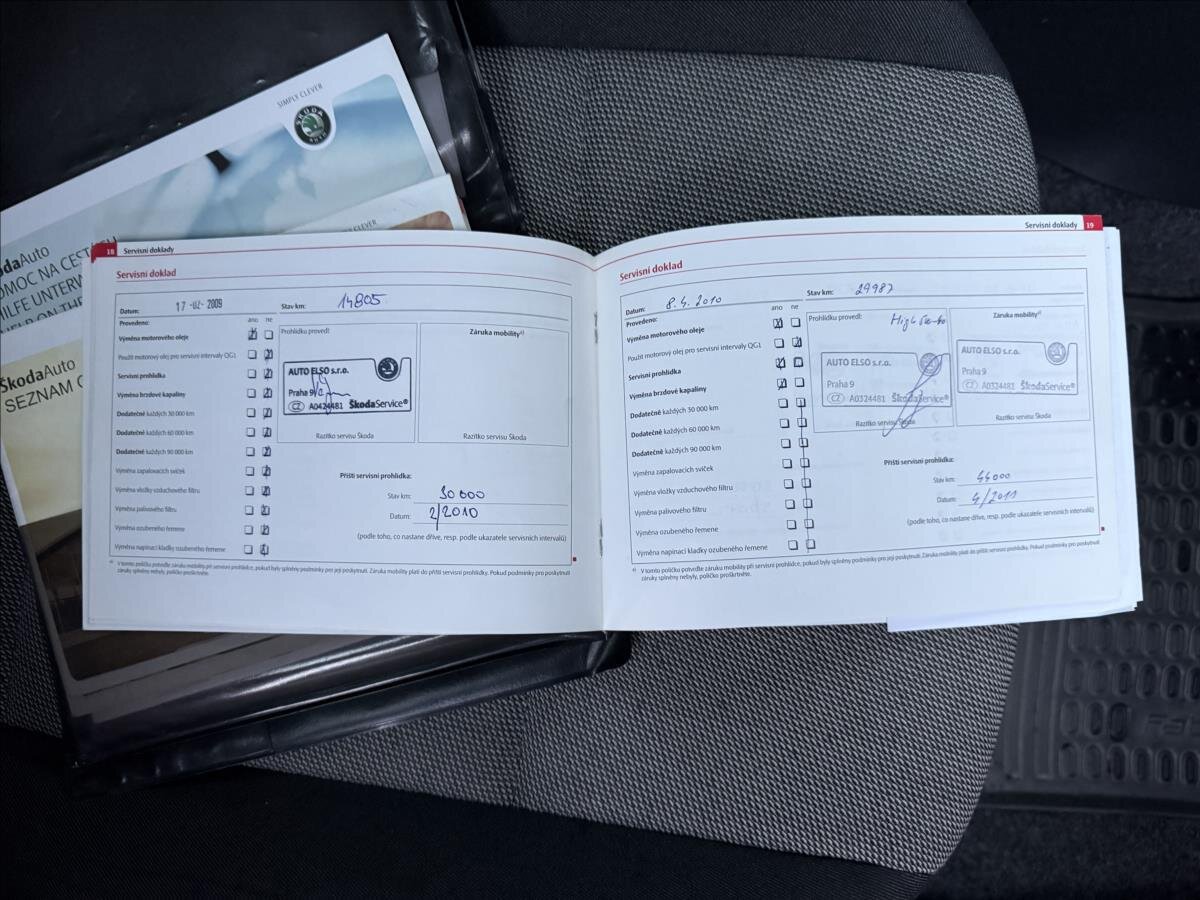 SIMPLY CLEVER
ŠKODA
AUTO
daAuto
OMOC NA CEST
HILFE UNTERW
HELP ON TH
ŠkodaAuto
SEZNAM
18 Servisní doklady
Servisní doklad
Datum: 17 -02- 2009 Stav km: 14805
Provedeno: ano ne
Výměna motorového oleje
Použit motorový olej pro servisní intervaly QG1
Servisní prohlídka
Výměna brzdové kapaliny
Dodatečně každých 30 000 km
Dodatečně každých 60 000 km
Dodatečně každých 90 000 km
Výměna zapalovacích svíček
Výměna vložky vzduchového filtru
Výměna palivového filtru
Výměna ozubeného řemene
Výměna napínací kladky ozubeného řemene
Prohlídku provedl:
AUTO ELSO s.r.o.
Praha 9
CZ A0324481 ŠkodaService®
Razítko servisu Škoda
Záruka mobility a)
Razítko servisu Škoda
Příští servisní prohlídka:
Stav km: 30 000
Datum: 2/2010
(podle toho, co nastane dříve, resp. podle ukazatele servisních intervalů)
a) V tomto políčku potvrďte záruku mobility při servisní prohlídce, pokud byly splněny podmínky pro její poskytnutí. Záruka mobility platí do příští servisní prohlídky. Pokud podmínky pro poskytnutí
záruky splněny nebyly, políčko proškrtněte.
Servisní doklady 19
Servisní doklad
Datum: 8.4.2010 Stav km: 29987
Provedeno: ano ne
Výměna motorového oleje
Použit motorový olej pro servisní intervaly QG1
Servisní prohlídka
Výměna brzdové kapaliny
Dodatečně každých 30 000 km
Dodatečně každých 60 000 km
Dodatečně každých 90 000 km
Výměna zapalovacích svíček
Výměna vložky vzduchového filtru
Výměna palivového filtru
Výměna ozubeného řemene
Výměna napínací kladky ozubeného řemene
Prohlídku provedl:
AUTO ELSO s.r.o.
Praha 9
CZ A0324481 ŠkodaService®
Razítko servisu Škoda
Záruka mobility a)
AUTO ELSO s.r.o.
Praha 9
CZ A0324481 ŠkodaService®
Razítko servisu Škoda
Příští servisní prohlídka:
Stav km: 44000
Datum: 4/2011
(podle toho, co nastane dříve, resp. podle ukazatele servisních intervalů)
a) V tomto políčku potvrďte záruku mobility při servisní prohlídce, pokud byly splněny podmínky pro její poskytnutí. Záruka mobility platí do příští servisní prohlídky. Pokud podmínky pro poskytnutí
záruky splněny nebyly, políčko proškrtněte.